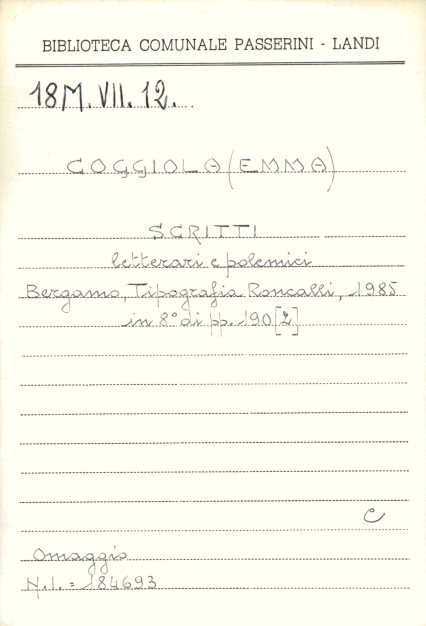 BIBLIOTECA COMUNALE PASSERINI - LANDI
18M.VII.12.
COGGIOLA (EMMA)
SCRITTI
letterari e polemici
Bergamo, Tipografia Roncalli, 1985
in 8° di pp. 190 [2]
C
Omaggio
N.I. = 184693